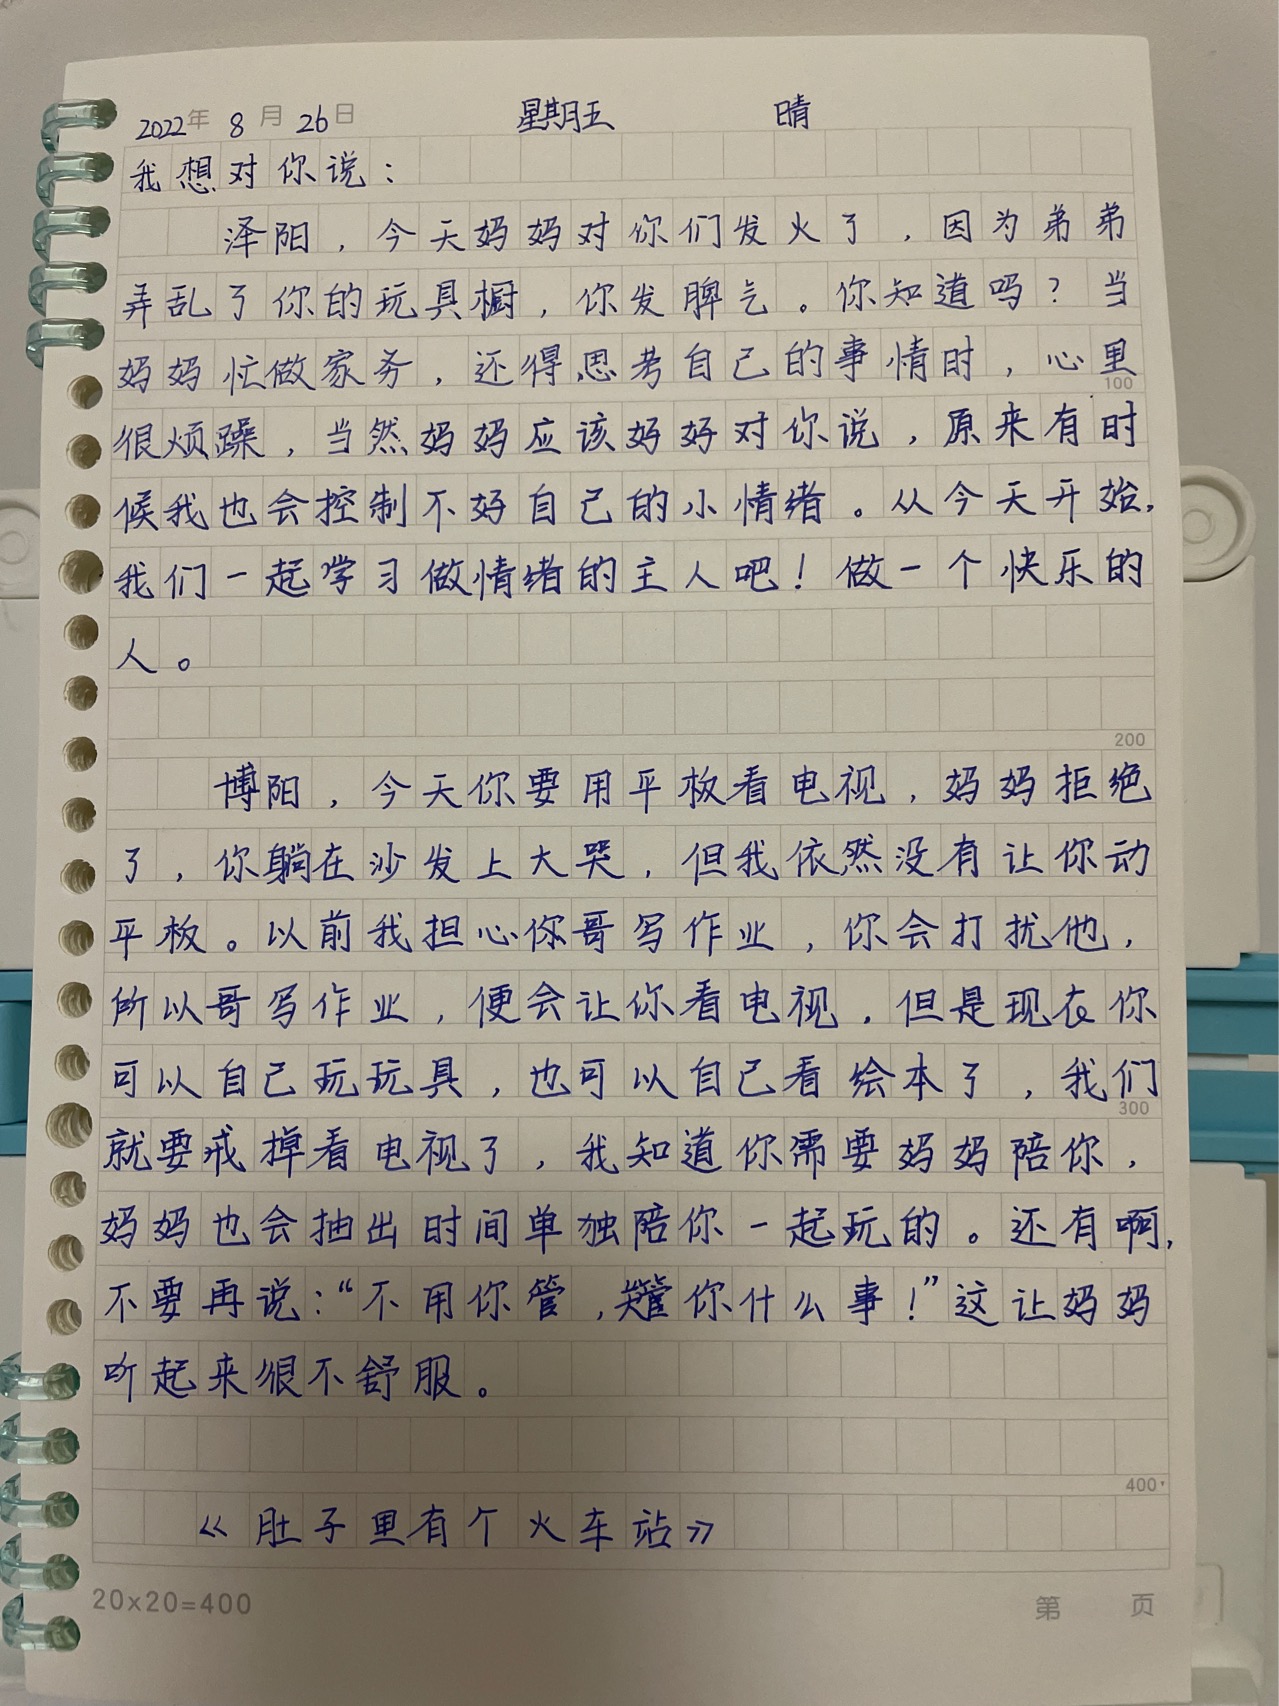 2022年 8月 26日 星期五 晴
我想对你说：
泽阳，今天妈妈对你们发火了，因为弟弟
弄乱了你的玩具橱，你发脾气。你知道吗？当
妈妈忙做家务，还得思考自己的事情时，心里
100
很烦躁，当然妈妈应该好好对你说，原来有时
候我也会控制不好自己的小情绪。从今天开始，
我们一起学习做情绪的主人吧！做一个快乐的
人。
200
博阳，今天你要用平板看电视，妈妈拒绝
了，你躺在沙发上大哭，但我依然没有让你动
平板。以前我担心你哥写作业，你会打扰他，
所以哥写作业，便会让你看电视，但是现在你
可以自己玩玩具，也可以自己看绘本了，我们
300
就要戒掉看电视了，我知道你需要妈妈陪你，
妈妈也会抽出时间单独陪你一起玩的。还有啊，
不要再说：“不用你管，关你什么事！”这让妈妈
听起来很不舒服。
400
《肚子里有个火车站》
20×20=400 第 页